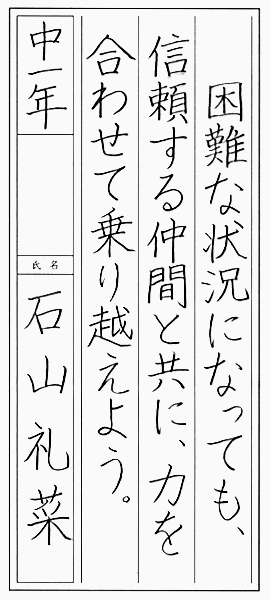 困難な状況になっても、
信頼する仲間と共に、力を
合わせて乗り越えよう。
中一年
氏名
石山礼菜